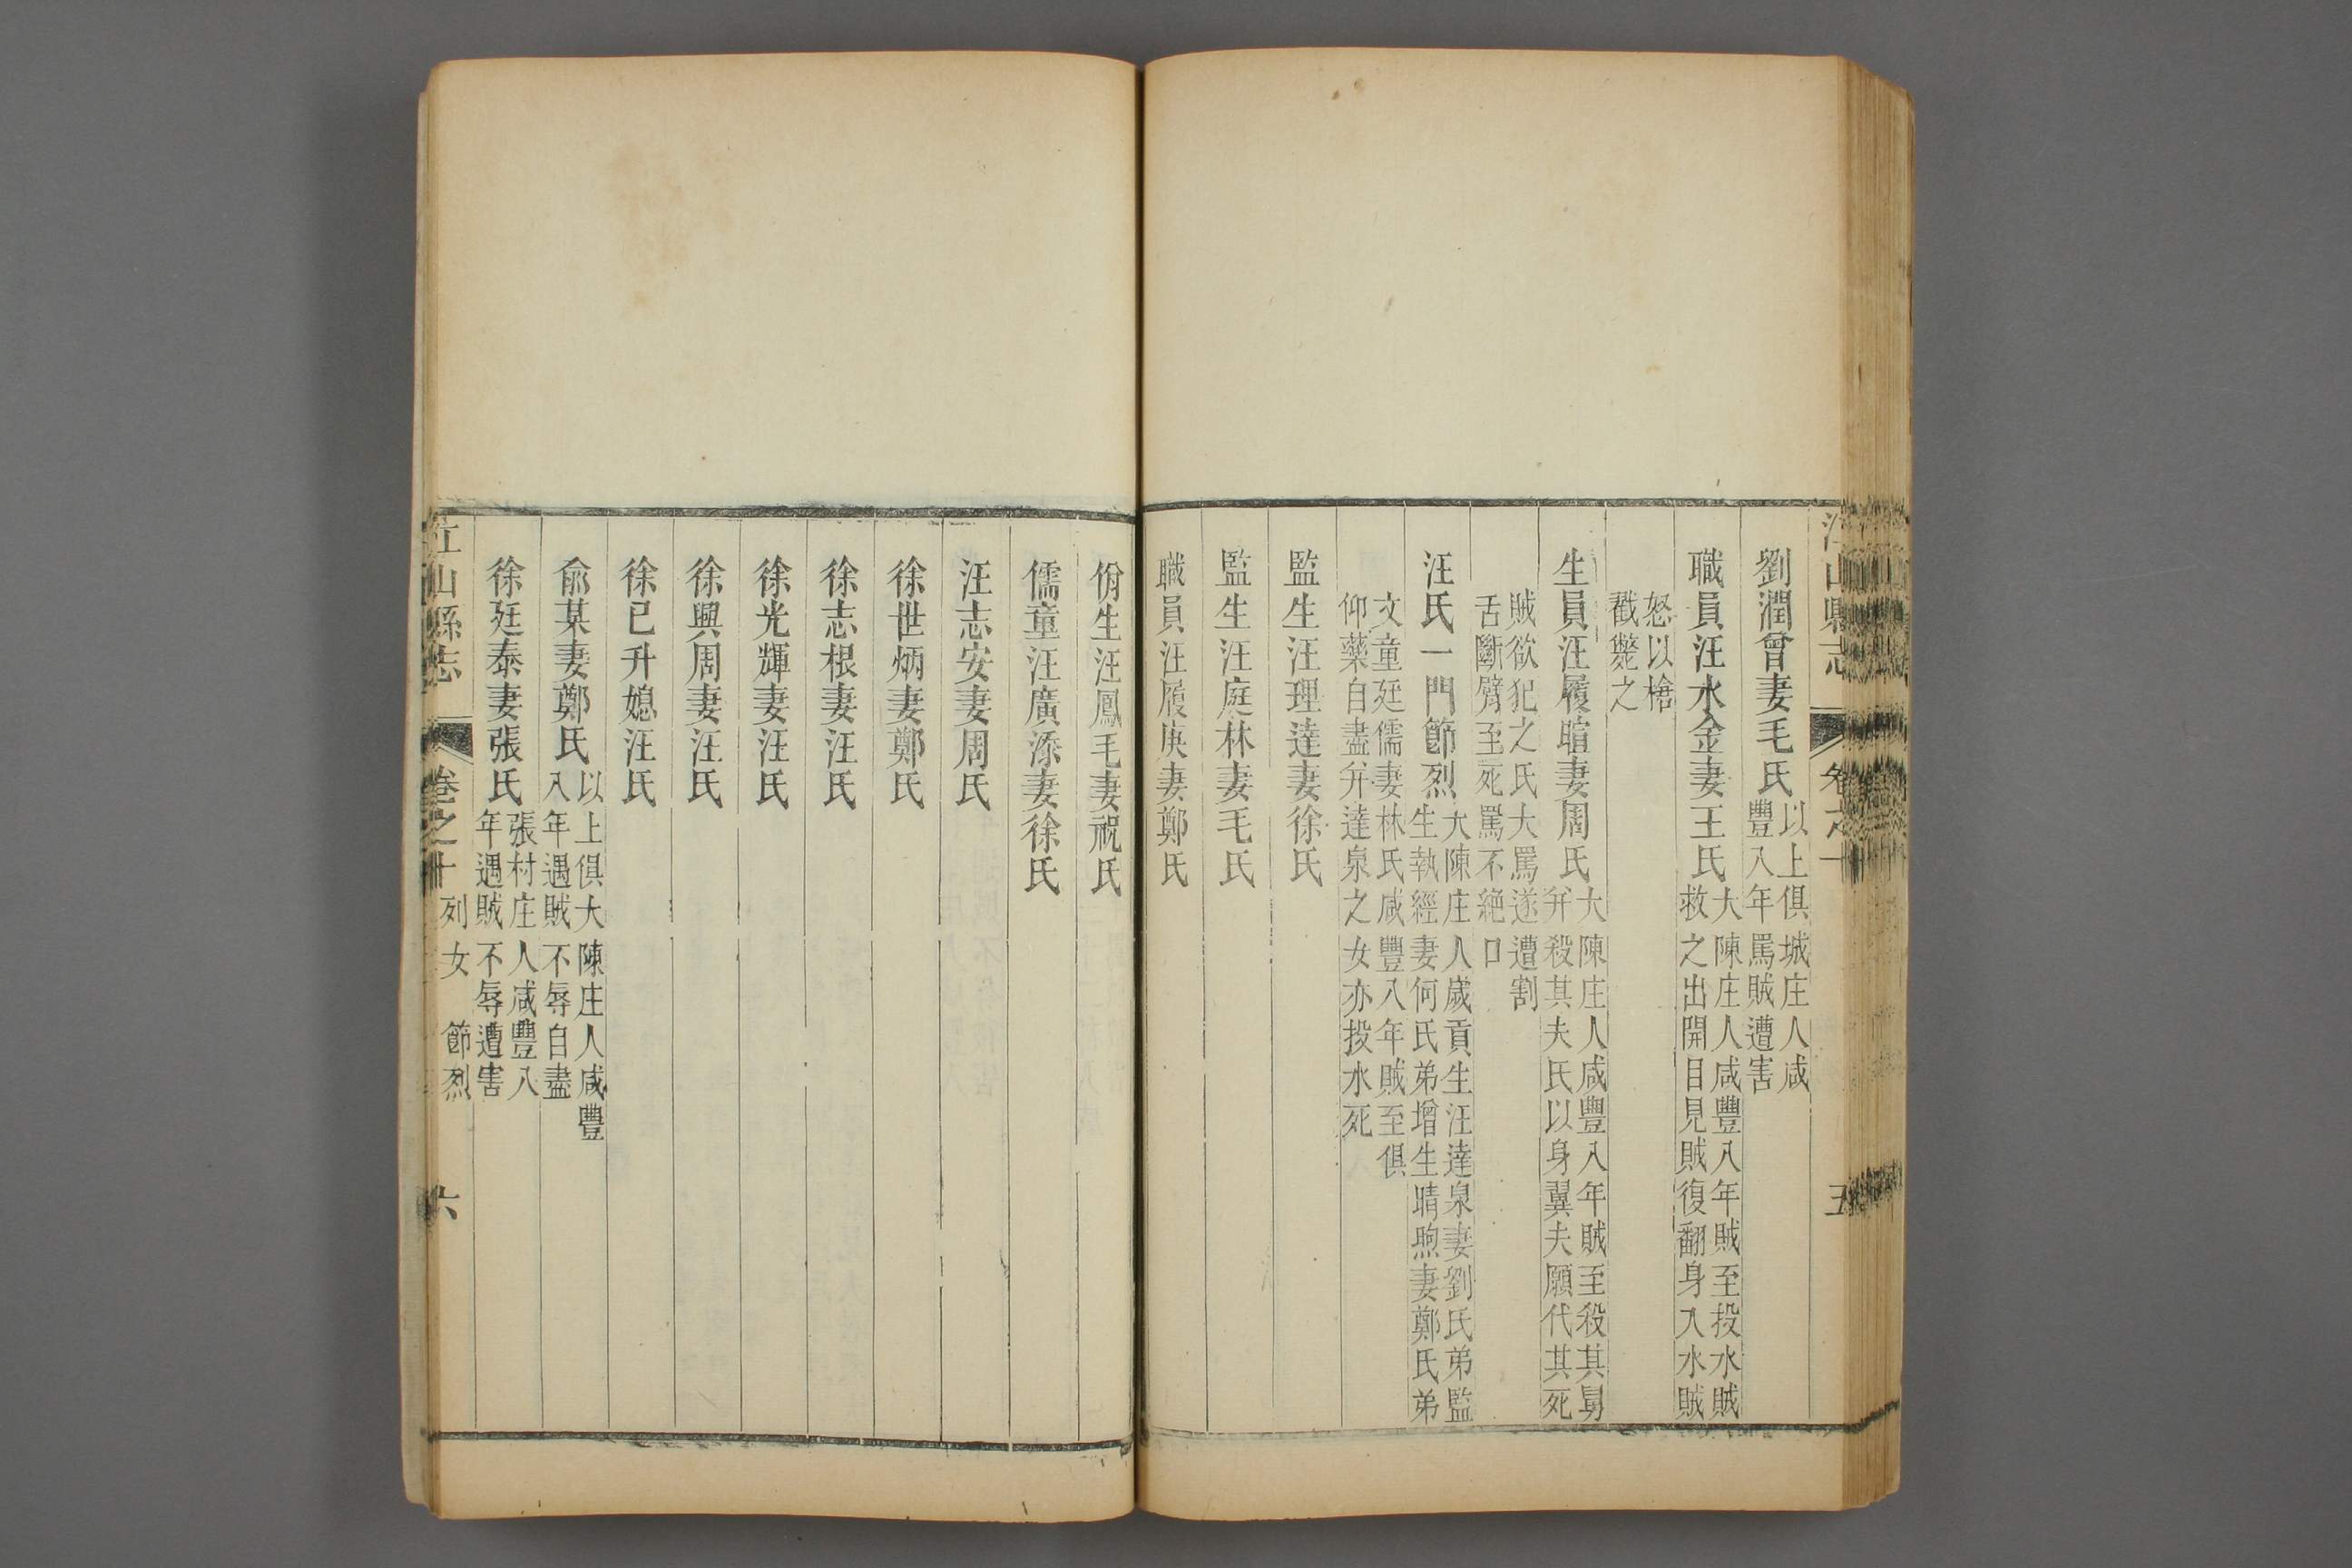 江山縣志 卷之十 五
劉潤曾妻毛氏 以上俱城庄人咸
豐八年罵賊遭害
職員汪水金妻王氏 大陳庄人咸豐八年賊至投水賊
救之出開目見賊復翻身入水賊
怒以槍
戳斃之
生員汪履暄妻周氏 大陳庄人咸豐八年賊至殺其舅
幷殺其夫氏以身翼夫願代其死
賊欲犯之氏大罵遂遭割
舌斷臂至死罵不絕口
汪氏一門節烈 大陳庄人歲貢生汪達泉妻劉氏弟監
生執經妻何氏弟增生晴煦妻鄭氏弟
文童廷儒妻林氏咸豐八年賊至俱
仰藥自盡幷達泉之女亦投水死
監生汪理達妻徐氏
監生汪庭林妻毛氏
職員汪履庚妻鄭氏
佾生汪鳳毛妻祝氏
儒童汪廣添妻徐氏
汪志安妻周氏
徐世炳妻鄭氏
徐志根妻汪氏
徐光輝妻汪氏
徐興周妻汪氏
徐已升媳汪氏
俞某妻鄭氏 以上俱大陳庄人咸豐
八年遇賊不辱自盡
徐廷泰妻張氏 張村庄人咸豐八
年遇賊不辱遭害
江山縣志 卷之十 列女 節烈 六